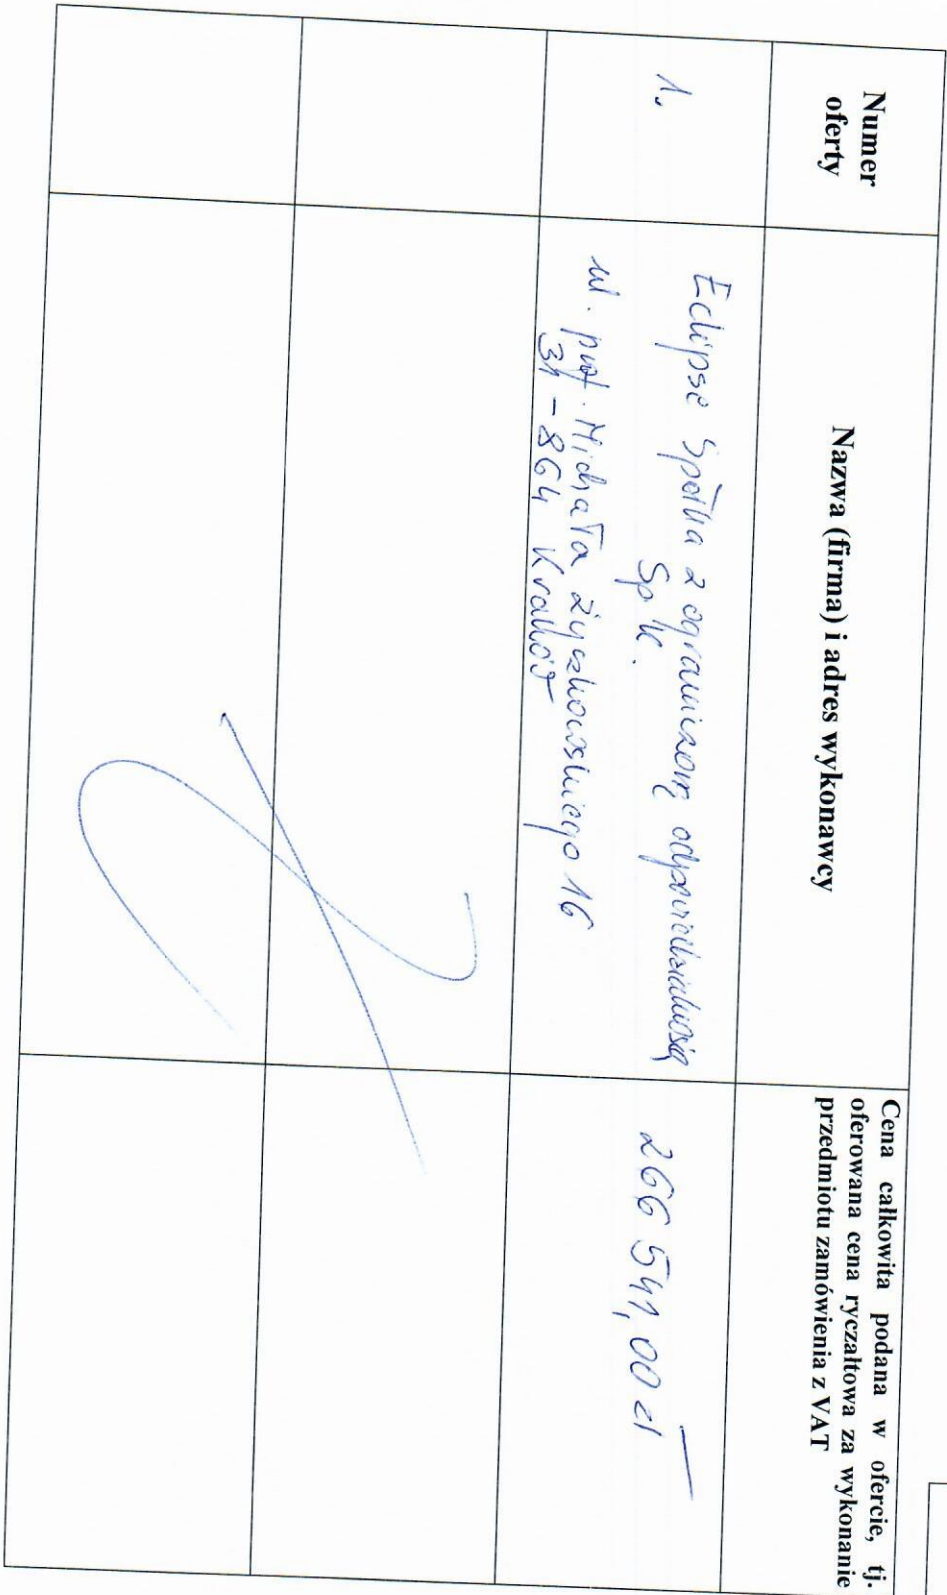 Numer
oferty
Nazwa (firma) i adres wykonawcy
Cena całkowita podana w ofercie, tj.
oferowana cena ryczałtowa za wykonanie
przedmiotu zamówienia z VAT
1.
Eclipse Spółka z ograniczoną odpowiedzialnością
Sp k.
ul. prof. Michała Życzkowskiego 16
31-864 Kraków
266 541,00 zł